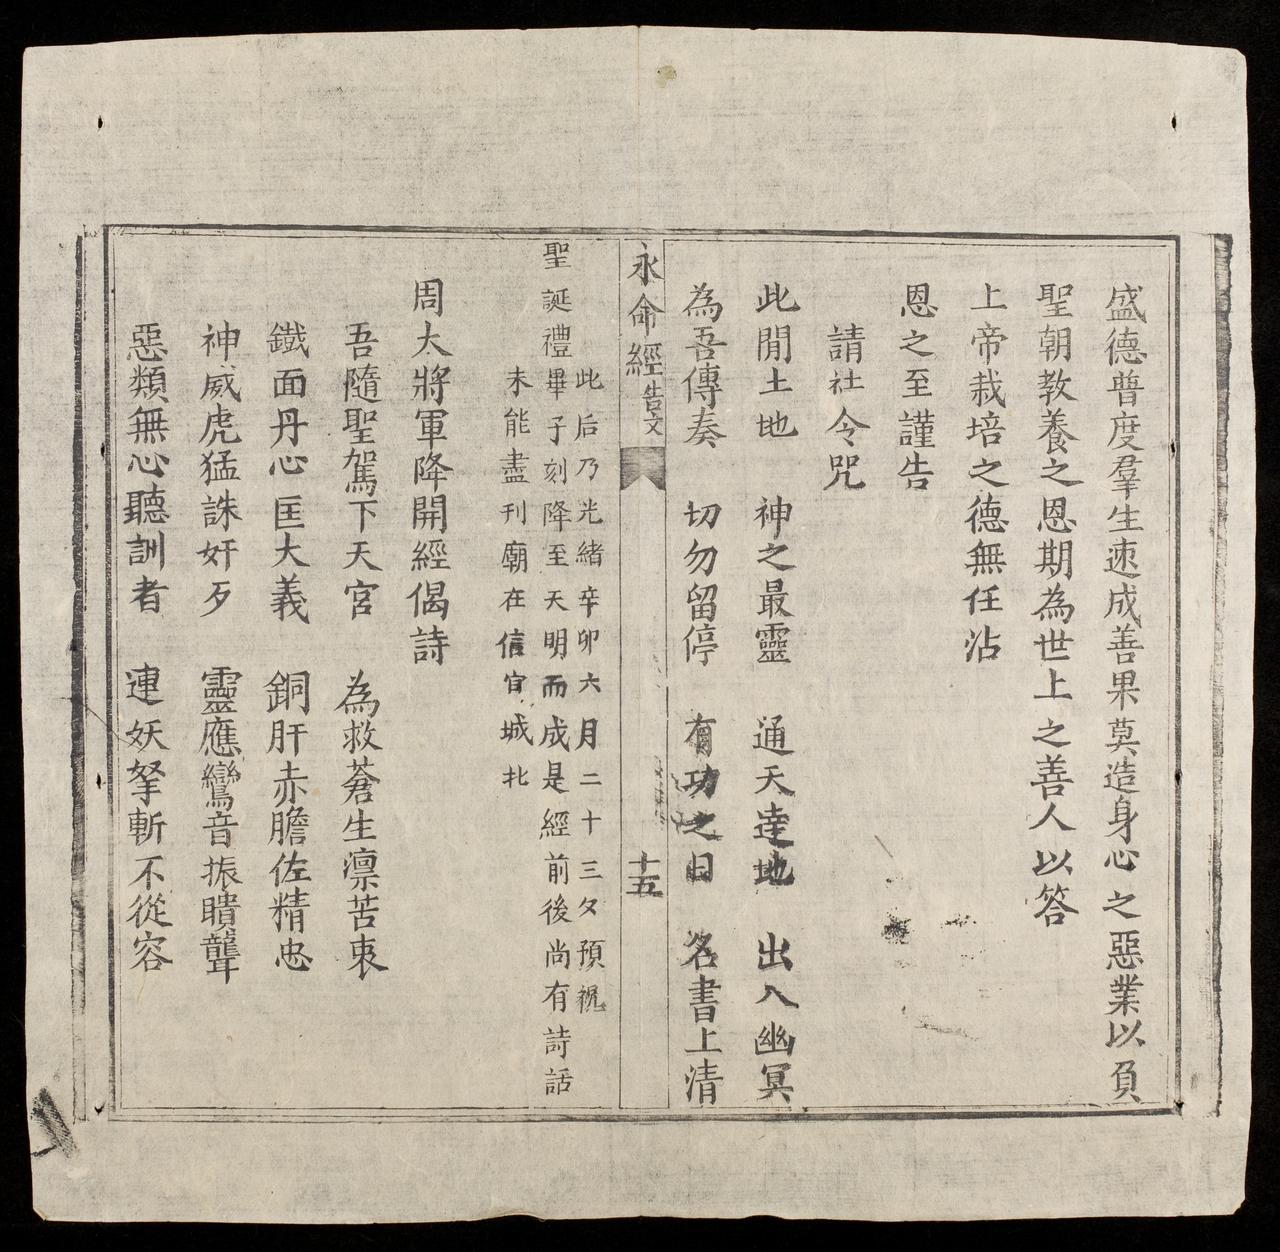 盛德普度羣生速成善果莫造身心之惡業以負
聖朝教養之恩期為世上之善人以答
上帝栽培之德無任沾
恩之至謹告
請社令咒
此閒土地 神之最靈 通天達地 出入幽冥
為吾傳奏 切勿留停 有功之日 名書上清
永命經 告文 十五
此后乃光緒辛卯六月二十三夕預祝
聖誕禮畢子刻降至天明而成是經前後尚有詩話
未能盡刊廟在信宜城北
周太將軍降開經偈詩
吾隨聖駕下天宮 為救蒼生凛苦衷
鐵面丹心匡大義 銅肝赤膽佐精忠
神威虎猛誅奸歹 靈應鸞音振聵聾
惡類無心聽訓者 連妖拏斬不從容